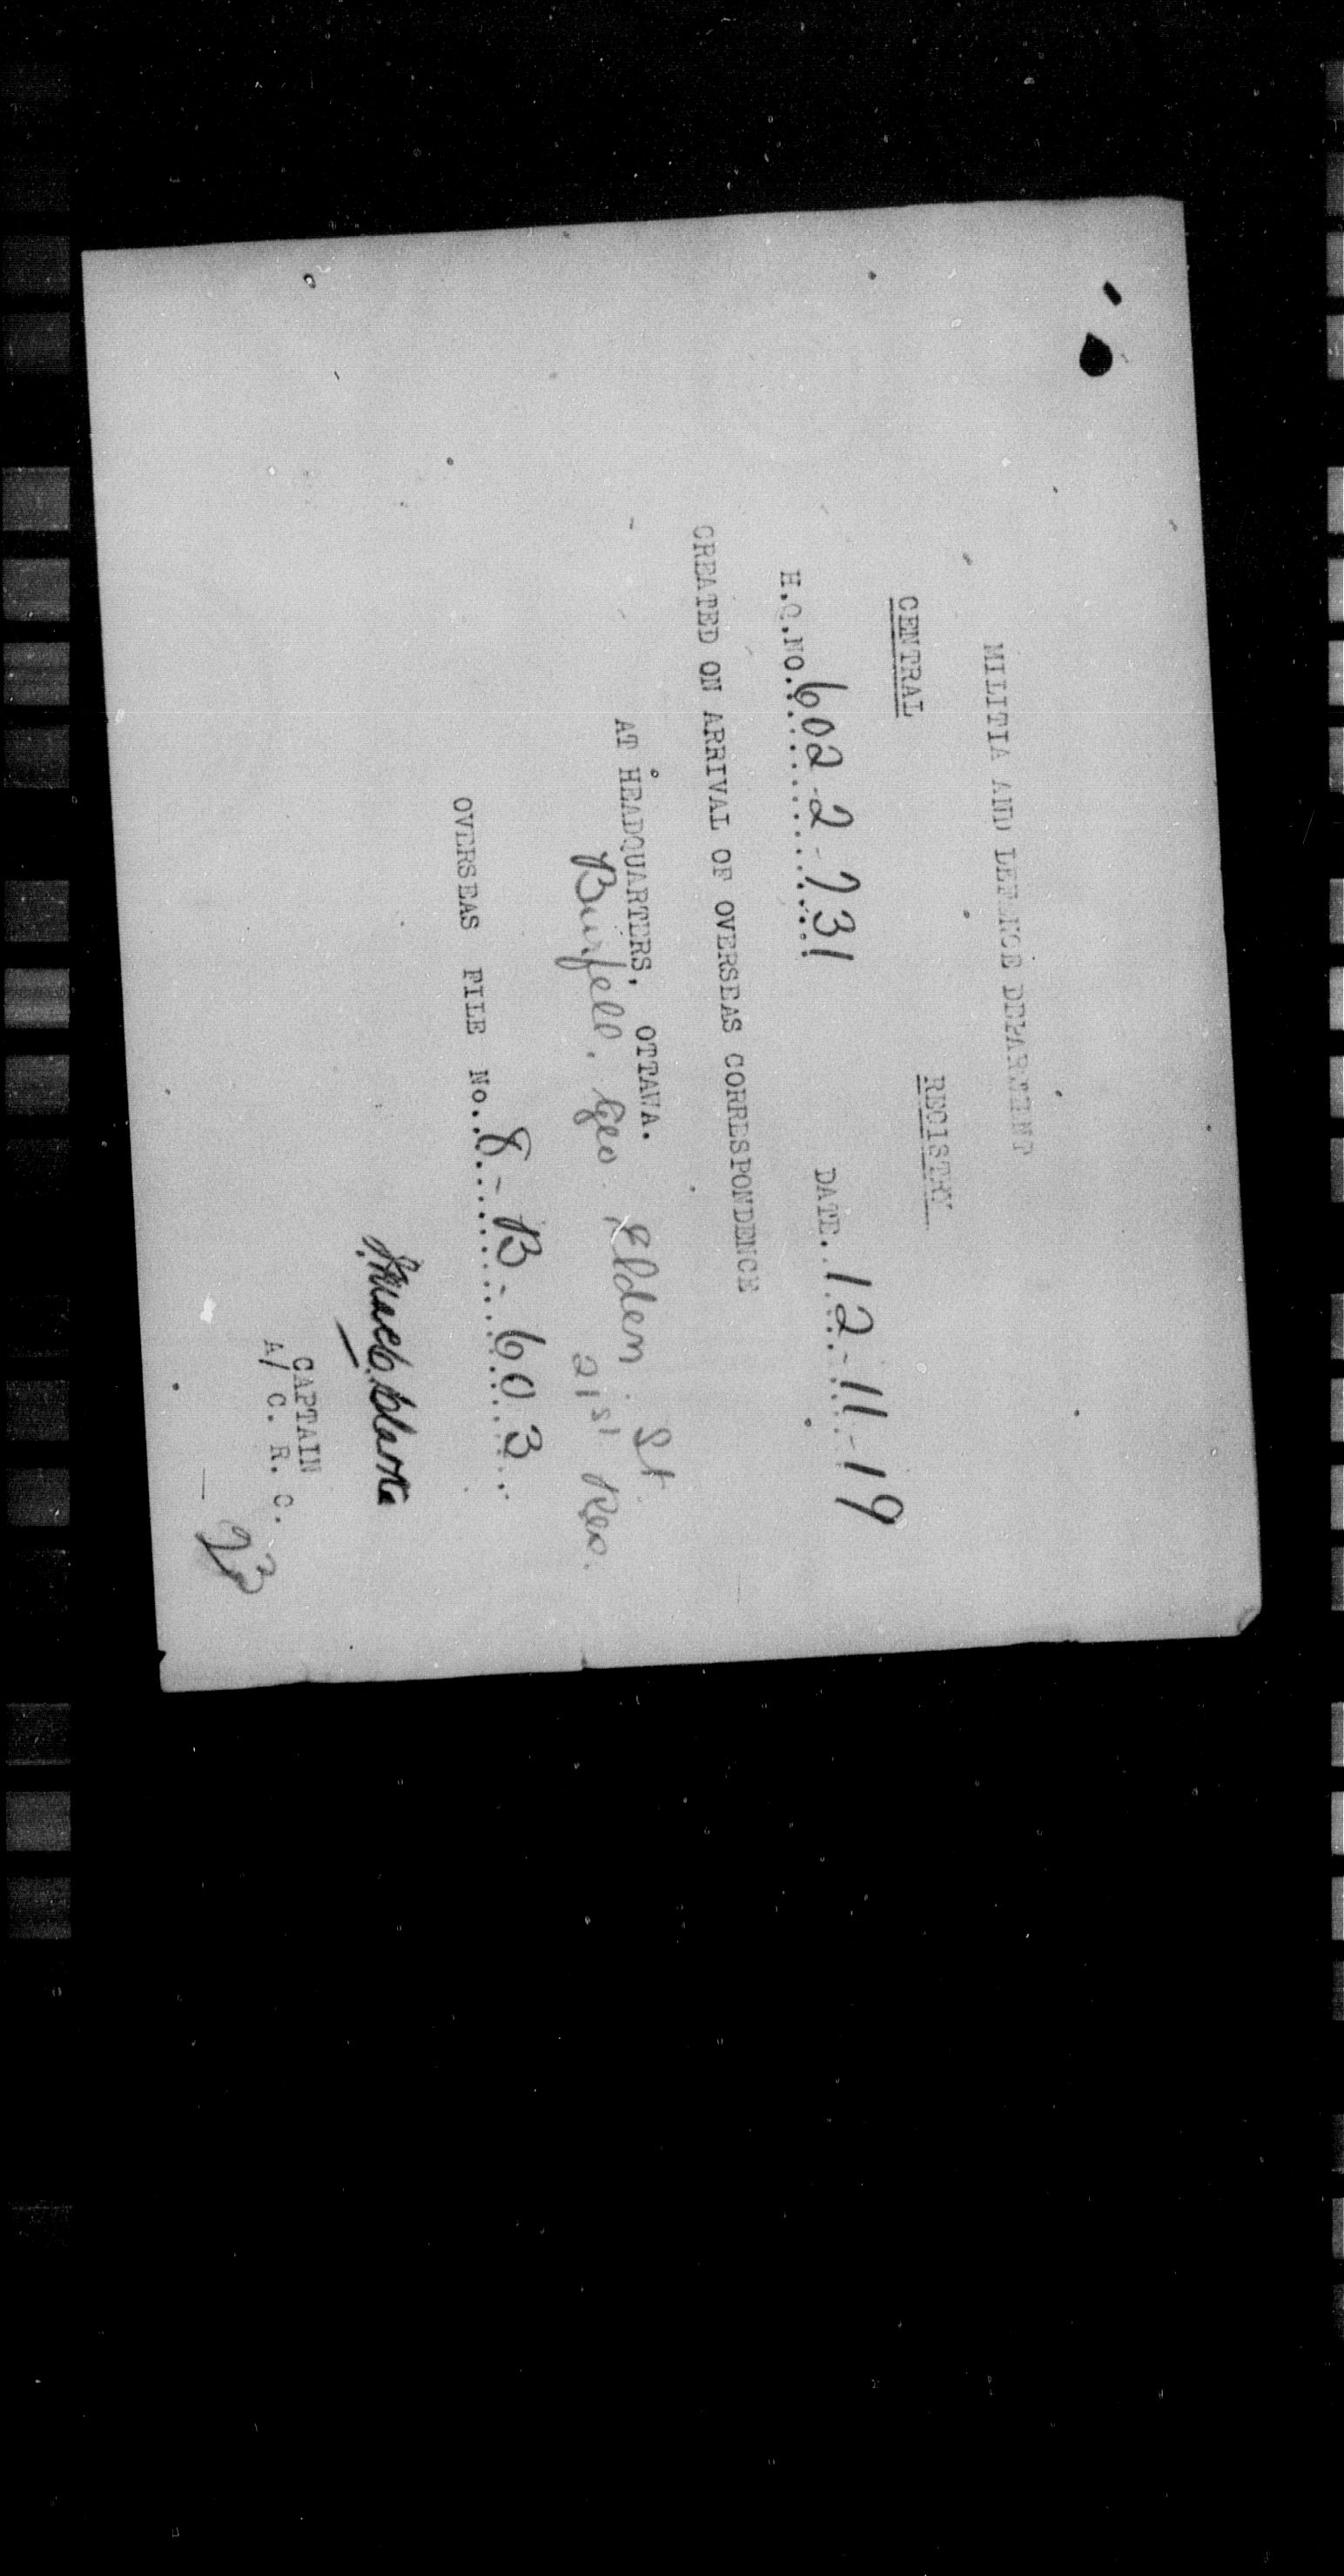 MILITIA AND DEFENCE DEPARTMENT
CENTRAL REGISTRY
H.Q.NO. 602-2-731 DATE. 12-11-19
CREATED ON ARRIVAL OF OVERSEAS CORRESPONDENCE
AT HEADQUARTERS, OTTAWA.
Burfell, Geo Elden Lt
21st Res.
OVERSEAS FILE No. 8-B-603
CAPTAIN
A/ C. R. O.
23